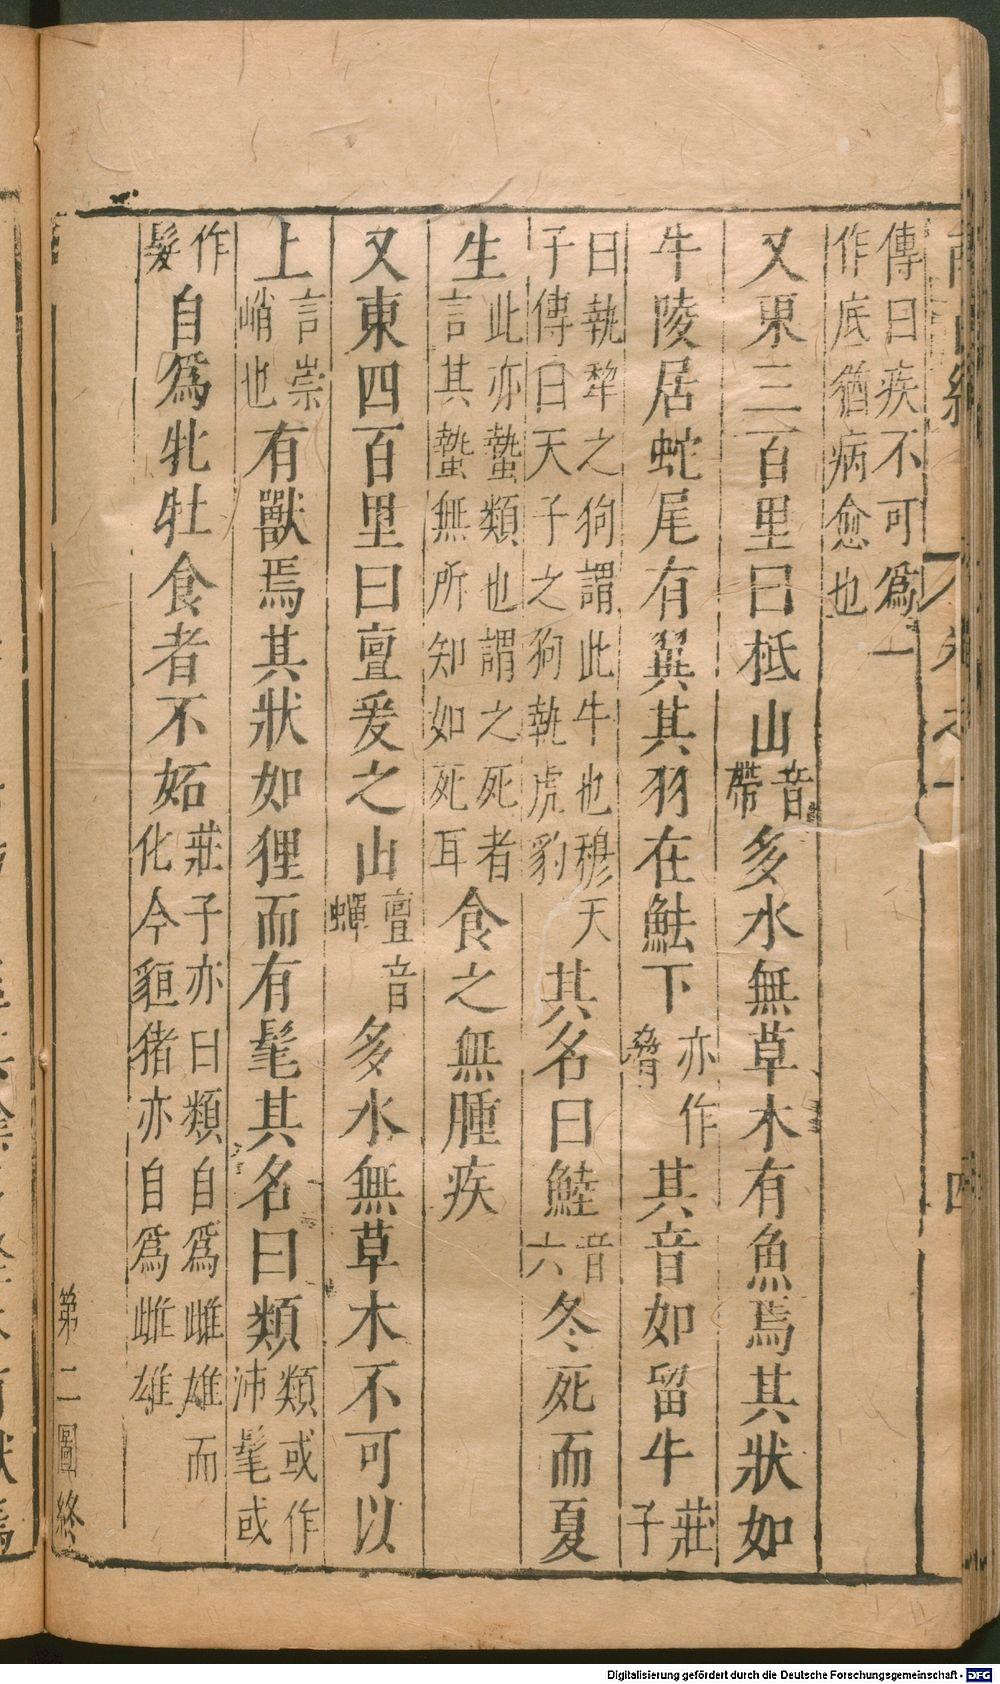 傳曰疾不可爲一
作底猶病愈也
又東三百里曰柢山音帶多水無草木有魚焉其狀如
牛陵居蛇尾有翼其羽在魼下亦作脅其音如留牛莊子
曰執犂之狗謂此牛也穆天子傳曰天子之狗執虎豹其名曰鯥音六冬死而夏
生此亦蟄類也謂之死者言其蟄無所知如死耳食之無腫疾
又東四百里曰亶爰之山亶音蟬多水無草木不可以
上言崇峭也有獸焉其狀如狸而有髦其名曰類類或作沛髦或
作髮自爲牝牡食者不妬莊子亦曰類自爲雌雄而化今貆猪亦自爲雌雄
第二圖終
Digitalisierung gefördert durch die Deutsche Forschungsgemeinschaft - DFG